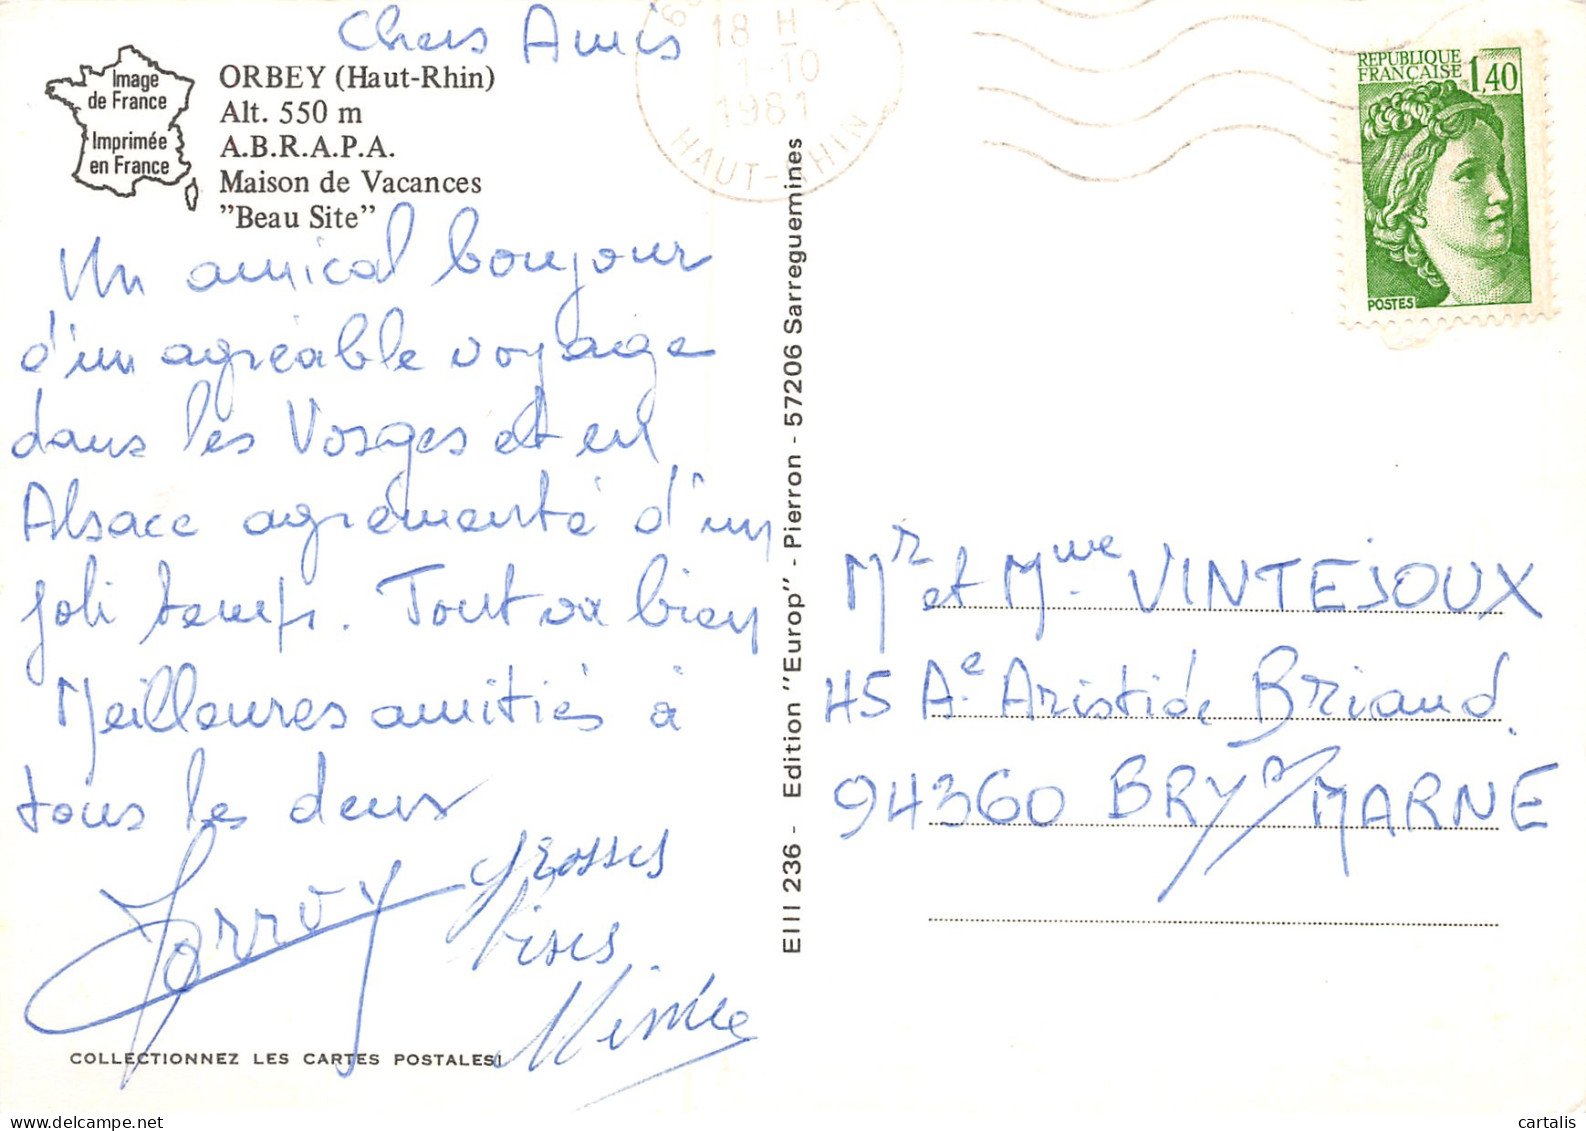 Chers Amis
Image
de France
Imprimée
en France
ORBEY (Haut-Rhin)
Alt. 550 m
A.B.R.A.P.A.
Maison de Vacances
"Beau Site"
Un amical bonjour
d'un agréable voyage
dans les Vosges et en
Alsace agrémenté d'un
joli temps. Tout va bien
Meilleures amitiés à
tous les deux
grosses
bises
COLLECTIONNEZ LES CARTES POSTALES!
EIII 236 - Edition "Europ" - Pierron - 57206 Sarreguemines
18 H
-10
1981
HAUT-RHIN
REPUBLIQUE
FRANÇAISE 1,40
POSTES
Mr et Mme VINTEJOUX
45 Ae Aristide Briand
94360 BRY s/ MARNE
cartalis